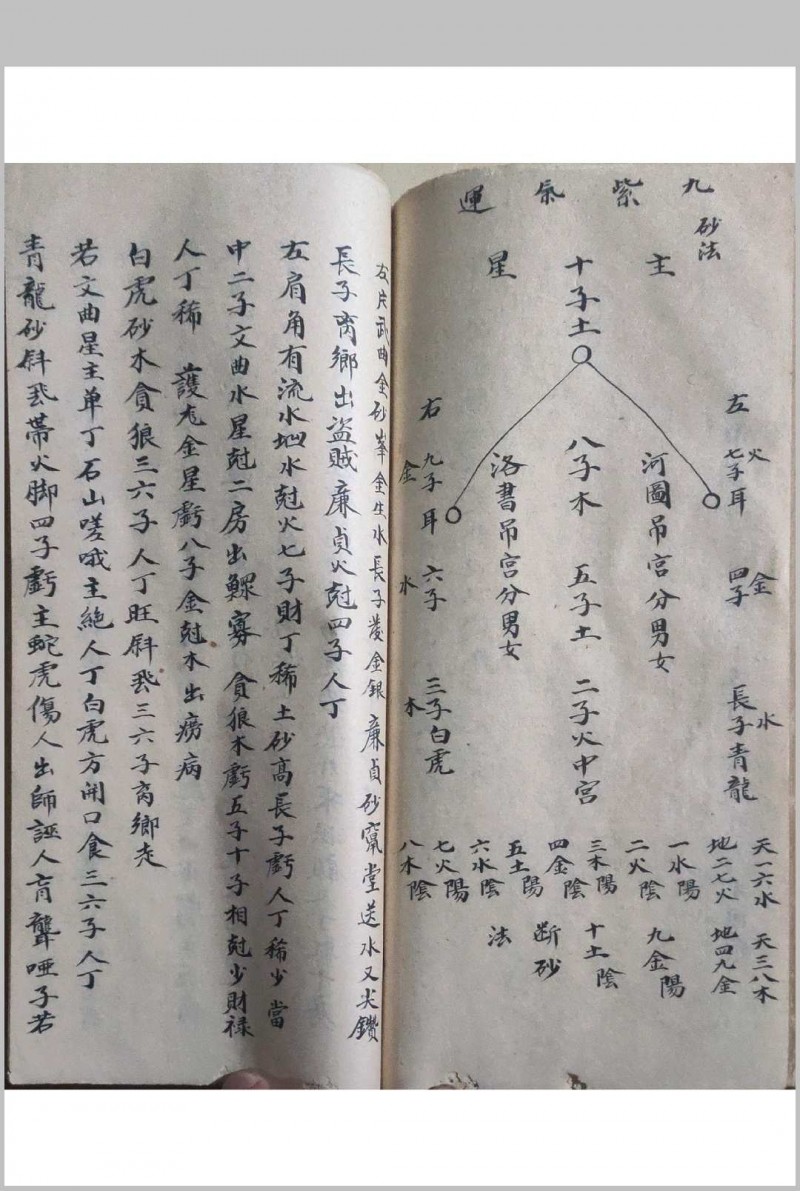 九紫氣運
砂法
主星
十子土
左
火
七子耳
金
四子
水
長子青龍
河圖吊宮分男女
八子木 五子土 二子火中宮
洛書吊宮分男女
右
九子耳
金
六子
水
三子白虎
木
天一六水 天三八木
地二七火 地四九金
一水陽 九金陽
二火陰
三木陽 十土陰
四金陰 断砂
五土陽 法
六水陰
七火陽
八木陰
左片武曲金砂峯金生水長子發金銀 廉貞砂竄堂送水又尖鑽
長子离鄉出盜賊廉貞火尅四子人丁
左肩角有流水地水尅火七子財丁稀土砂高長子虧人丁稀少當
中二子文曲水星尅二房出鰥寡 貪狼木虧五子十子相尅少財禄
人丁稀 護龙金星虧八子金尅木出癆病
白虎砂木貪狼三六子人丁旺斜飛三六子离鄉走
若文曲星主单丁石山嵯峨主絶人丁白虎方開口食三六子人丁
青龍砂斜飛帶火脚四子虧主蛇虎傷人出師誣人肓聾啞子若